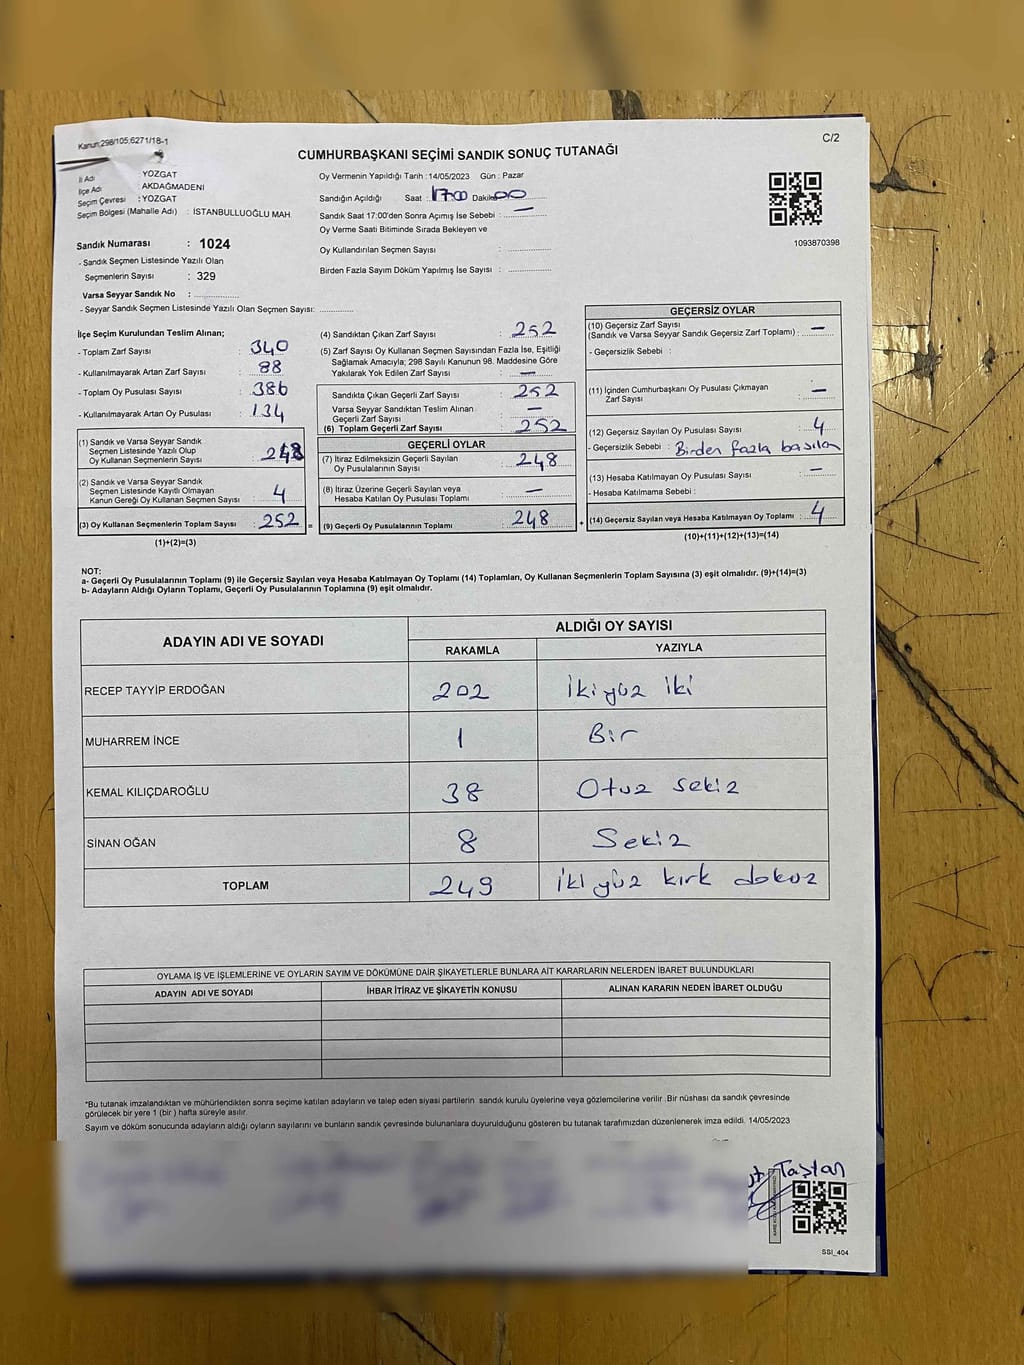 Kanun;298/105;6271/18-1
C/2
CUMHURBAŞKANI SEÇİMİ SANDIK SONUÇ TUTANAĞI
İl Adı : YOZGAT
İlçe Adı : AKDAĞMADENİ
Seçim Çevresi : YOZGAT
Seçim Bölgesi (Mahalle Adı) : İSTANBULLUOĞLU MAH
Sandık Numarası : 1024
- Sandık Seçmen Listesinde Yazılı Olan
Seçmenlerin Sayısı : 329
Varsa Seyyar Sandık No :
- Seyyar Sandık Seçmen Listesinde Yazılı Olan Seçmen Sayısı:
Oy Vermenin Yapıldığı Tarih : 14/05/2023 Gün : Pazar
Sandığın Açıldığı Saat : 17:00 Dakika 00
Sandık Saat 17:00'den Sonra Açımış İse Sebebi : —
Oy Verme Saati Bitiminde Sırada Bekleyen ve
Oy Kullandırılan Seçmen Sayısı :
Birden Fazla Sayım Döküm Yapılmış İse Sayısı :
1093870398
İlçe Seçim Kurulundan Teslim Alınan;
- Toplam Zarf Sayısı : 340
- Kullanılmayarak Artan Zarf Sayısı : 88
- Toplam Oy Pusulası Sayısı : 386
- Kullanılmayarak Artan Oy Pusulası : 134
(1) Sandık ve Varsa Seyyar Sandık
Seçmen Listesinde Yazılı Olup
Oy Kullanan Seçmenlerin Sayısı : 248
(2) Sandık ve Varsa Seyyar Sandık
Seçmen Listesinde Kayıtlı Olmayan
Kanun Gereği Oy Kullanan Seçmen Sayısı : 4
(3) Oy Kullanan Seçmenlerin Toplam Sayısı : 252 =
(1)+(2)=(3)
(4) Sandıktan Çıkan Zarf Sayısı : 252
(5) Zarf Sayısı Oy Kullanan Seçmen Sayısından Fazla İse, Eşitliği
Sağlamak Amacıyla; 298 Sayılı Kanunun 98. Maddesine Göre
Yakılarak Yok Edilen Zarf Sayısı : —
Sandıkta Çıkan Geçerli Zarf Sayısı : 252
Varsa Seyyar Sandıktan Teslim Alınan
Geçerli Zarf Sayısı : —
(6) Toplam Geçerli Zarf Sayısı : 252
GEÇERLİ OYLAR
(7) İtiraz Edilmeksizin Geçerli Sayılan
Oy Pusulalarının Sayısı : 248
(8) İtiraz Üzerine Geçerli Sayılan veya
Hesaba Katılan Oy Pusulası Toplamı : —
(9) Geçerli Oy Pusulalarının Toplamı : 248 +
GEÇERSİZ OYLAR
(10) Geçersiz Zarf Sayısı
(Sandık ve Varsa Seyyar Sandık Geçersiz Zarf Toplamı) : —
- Geçersizlik Sebebi :
(11) İçinden Cumhurbaşkanı Oy Pusulası Çıkmayan
Zarf Sayısı : —
(12) Geçersiz Sayılan Oy Pusulası Sayısı : 4
- Geçersizlik Sebebi : Birden fazla basılan
(13) Hesaba Katılmayan Oy Pusulası Sayısı : —
- Hesaba Katılmama Sebebi :
(14) Geçersiz Sayılan veya Hesaba Katılmayan Oy Toplamı : 4
(10)+(11)+(12)+(13)=(14)
NOT:
a- Geçerli Oy Pusulalarının Toplamı (9) ile Geçersiz Sayılan veya Hesaba Katılmayan Oy Toplamı (14) Toplamları, Oy Kullanan Seçmenlerin Toplam Sayısına (3) eşit olmalıdır. (9)+(14)=(3)
b- Adayların Aldığı Oyların Toplamı, Geçerli Oy Pusulalarının Toplamına (9) eşit olmalıdır.
ADAYIN ADI VE SOYADI
ALDIĞI OY SAYISI
RAKAMLA YAZIYLA
RECEP TAYYİP ERDOĞAN 202 İkiyüz iki
MUHARREM İNCE 1 Bir
KEMAL KILIÇDAROĞLU 38 Otuz sekiz
SİNAN OĞAN 8 Sekiz
TOPLAM 249 İki yüz kırk dokuz
OYLAMA İŞ VE İŞLEMLERİNE VE OYLARIN SAYIM VE DÖKÜMÜNE DAİR ŞİKAYETLERLE BUNLARA AİT KARARLARIN NELERDEN İBARET BULUNDUKLARI
ADAYIN ADI VE SOYADI İHBAR İTİRAZ VE ŞİKAYETİN KONUSU ALINAN KARARIN NEDEN İBARET OLDUĞU
*Bu tutanak imzalandıktan ve mühürlendikten sonra seçime katılan adayların ve talep eden siyasi partilerin sandık kurulu üyelerine veya gözlemcilerine verilir .Bir nüshası da sandık çevresinde
görülecek bir yere 1 (bir ) hafta süreyle asılır.
Sayım ve döküm sonucunda adayların aldığı oyların sayılarını ve bunların sandık çevresinde bulunanlara duyurulduğunu gösteren bu tutanak tarafımızdan düzenlenerek imza edildi. 14/05/2023
Taştan
SSI_404